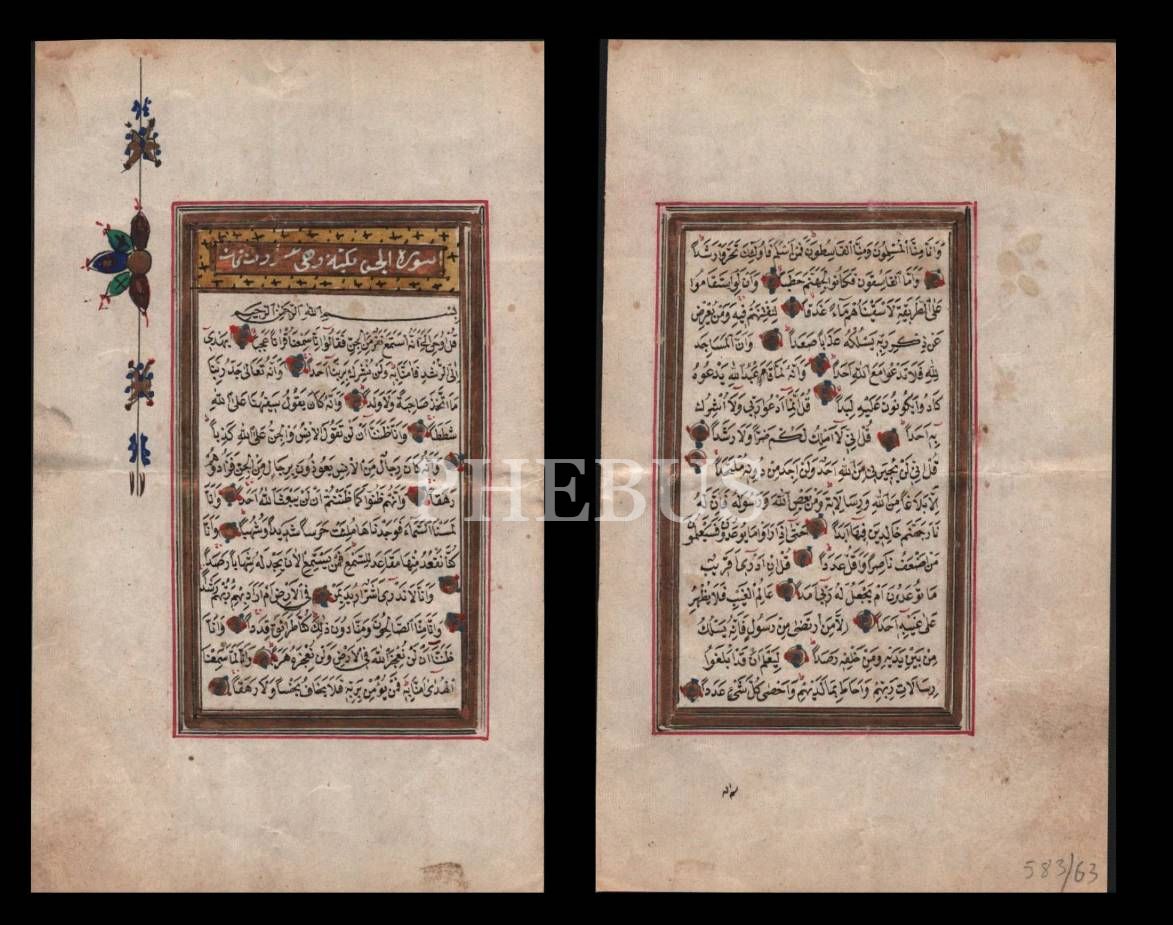 سورة الجن مكية وهي
بسم الله الرحمن الرحيم
قُلْ اُوحِيَ اِلَيَّ اَنَّهُ اسْتَمَعَ نَفَرٌ مِنَ الْجِنِّ فَقَالُوا اِنَّا سَمِعْنَا قُرْاٰنًا عَجَبًا يَهْدِي
اِلَى الرُّشْدِ فَاٰمَنَّا بِهِ وَلَنْ نُشْرِكَ بِرَبِّنَا اَحَدًا وَاَنَّهُ تَعَالٰى جَدُّ رَبِّنَا
مَا اتَّخَذَ صَاحِبَةً وَلَا وَلَدًا وَاَنَّهُ كَانَ يَقُولُ سَفِيهُنَا عَلَى اللهِ
شَطَطًا وَاَنَّا ظَنَنَّا اَنْ لَنْ تَقُولَ الْاِنْسُ وَالْجِنُّ عَلَى اللهِ كَذِبًا
وَاَنَّهُ كَانَ رِجَالٌ مِنَ الْاِنْسِ يَعُوذُونَ بِرِجَالٍ مِنَ الْجِنِّ فَزَادُوهُمْ
رَهَقًا وَاَنَّهُمْ ظَنُّوا كَمَا ظَنَنْتُمْ اَنْ لَنْ يَبْعَثَ اللهُ اَحَدًا وَاَنَّا
لَمَسْنَا السَّمَاءَ فَوَجَدْنَاهَا مُلِئَتْ حَرَسًا شَدِيدًا وَشُهُبًا وَاَنَّا
كُنَّا نَقْعُدُ مِنْهَا مَقَاعِدَ لِلسَّمْعِ فَمَنْ يَسْتَمِعِ الْاٰنَ يَجِدْ لَهُ شِهَابًا رَصَدًا
وَاَنَّا لَا نَدْرِي اَشَرٌّ اُرِيدَ بِمَنْ فِي الْاَرْضِ اَمْ اَرَادَ بِهِمْ رَبُّهُمْ رَشَدًا
وَاَنَّا مِنَّا الصَّالِحُونَ وَمِنَّا دُونَ ذٰلِكَ كُنَّا طَرَائِقَ قِدَدًا وَاَنَّا
ظَنَنَّا اَنْ لَنْ نُعْجِزَ اللهَ فِي الْاَرْضِ وَلَنْ نُعْجِزَهُ هَرَبًا وَاَنَّا لَمَّا سَمِعْنَا
الْهُدٰى اٰمَنَّا بِهِ فَمَنْ يُؤْمِنْ بِرَبِّهِ فَلَا يَخَافُ بَخْسًا وَلَا رَهَقًا
وَاَنَّا مِنَّا الْمُسْلِمُونَ وَمِنَّا الْقَاسِطُونَ فَمَنْ اَسْلَمَ فَاُولٰئِكَ تَحَرَّوْا رَشَدًا
وَاَمَّا الْقَاسِطُونَ فَكَانُوا لِجَهَنَّمَ حَطَبًا وَاَنْ لَوِ اسْتَقَامُوا
عَلَى الطَّرِيقَةِ لَاَسْقَيْنَاهُمْ مَاءً غَدَقًا لِنَفْتِنَهُمْ فِيهِ وَمَنْ يُعْرِضْ
عَنْ ذِكْرِ رَبِّهِ يَسْلُكْهُ عَذَابًا صَعَدًا وَاَنَّ الْمَسَاجِدَ
لِلّٰهِ فَلَا تَدْعُوا مَعَ اللهِ اَحَدًا وَاَنَّهُ لَمَّا قَامَ عَبْدُ اللهِ يَدْعُوهُ
كَادُوا يَكُونُونَ عَلَيْهِ لِبَدًا قُلْ اِنَّمَا اَدْعُوا رَبِّي وَلَا اُشْرِكُ
بِهِ اَحَدًا قُلْ اِنِّي لَا اَمْلِكُ لَكُمْ ضَرًّا وَلَا رَشَدًا
قُلْ اِنِّي لَنْ يُجِيرَنِي مِنَ اللهِ اَحَدٌ وَلَنْ اَجِدَ مِنْ دُونِهِ مُلْتَحَدًا
اِلَّا بَلَاغًا مِنَ اللهِ وَرِسَالَاتِهِ وَمَنْ يَعْصِ اللهَ وَرَسُولَهُ فَاِنَّ لَهُ
نَارَ جَهَنَّمَ خَالِدِينَ فِيهَا اَبَدًا حَتّٰى اِذَا رَاَوْا مَا يُوعَدُونَ فَسَيَعْلَمُونَ
مَنْ اَضْعَفُ نَاصِرًا وَاَقَلُّ عَدَدًا قُلْ اِنْ اَدْرِي اَقَرِيبٌ
مَا تُوعَدُونَ اَمْ يَجْعَلُ لَهُ رَبِّي اَمَدًا عَالِمُ الْغَيْبِ فَلَا يُظْهِرُ
عَلٰى غَيْبِهِ اَحَدًا اِلَّا مَنِ ارْتَضٰى مِنْ رَسُولٍ فَاِنَّهُ يَسْلُكُ
مِنْ بَيْنِ يَدَيْهِ وَمِنْ خَلْفِهِ رَصَدًا لِيَعْلَمَ اَنْ قَدْ اَبْلَغُوا
رِسَالَاتِ رَبِّهِمْ وَاَحَاطَ بِمَا لَدَيْهِمْ وَاَحْصٰى كُلَّ شَيْءٍ عَدَدًا
583/63
PHEBUS